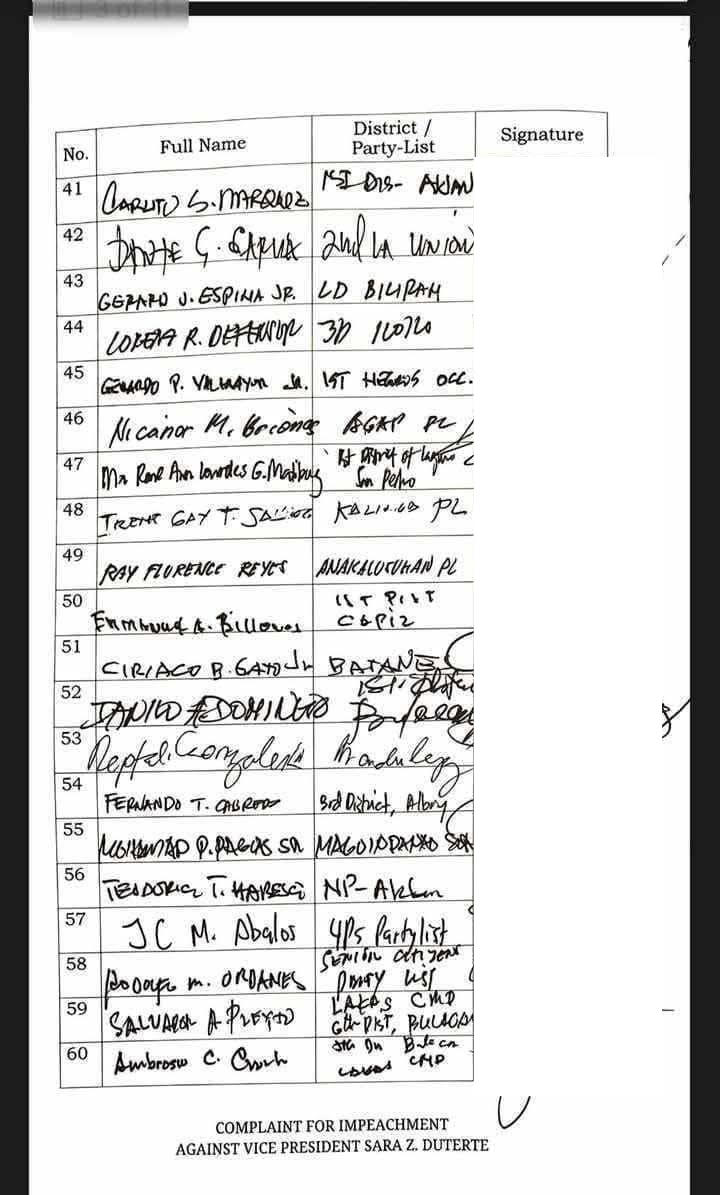 No. Full Name District / Party-List Signature
41 CARLITO S. MARQUEZ 1ST DIS- AKLAN
42 DANTE S. GARCIA 2nd LA UNION
43 GERARDO J. ESPINA JR. LD BILIRAN
44 LORENZ R. DEFENSOR 3D ILOILO
45 GERARDO P. VALMAYOR JR. 1ST NEGROS OCC.
46 Nicanor M. Briones AGAP PL
47 Ma Rene Ann Lourdes G. Matibag 1st District of Laguna
San Pedro
48 IRENE GAY T. SAULOG KALINGA PL
49 RAY FLORENCE REYES ANAKALUSUGAN PL
50 Emmanuel A. Billones 1ST DIST
CAPIZ
51 CIRIACO B. GATO Jr BATANES
52 DANILO A. DOMINGO 1st District
Bulacan
53 Neptali Gonzales II Mandaluyong
54 FERNANDO T. CABREDO 3rd District, Albay
55 MOHAMAD P. PAGLAS SR MAGUINDANAO SUR
56 TEODORICO T. HARESCO NP-Aklan
57 JC M. Abalos 4Ps Partylist
58 Rodolfo M. ORDANES SENIOR CITIZENS
PARTY LIST
59 SALVADOR A PLEYTO LAKAS CMD
6th DIST, BULACAN
60 Ambrosio C. Cruz 5th Dis Bulacan
LAKAS CMD
COMPLAINT FOR IMPEACHMENT
AGAINST VICE PRESIDENT SARA Z. DUTERTE